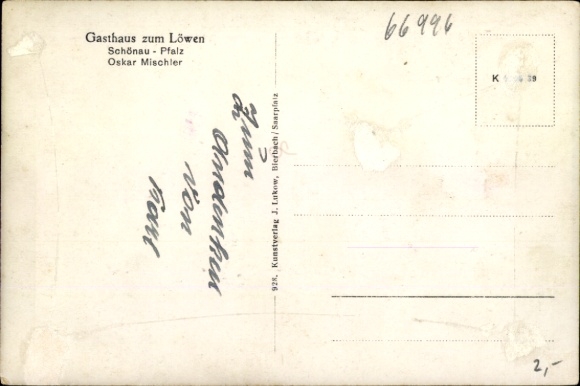 Gasthaus zum Löwen
Schönau - Pfalz
Oskar Mischler
Zum
Andenken
von
928, Kunstverlag J. Lukow, Bierbach/Saarpfalz
66996
K
39
2,-